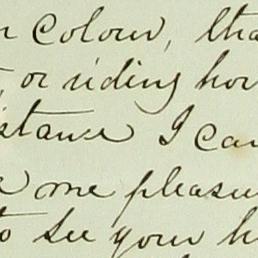 n Colour, tha
, or riding hor
istance I can
me pleasu
to see your h